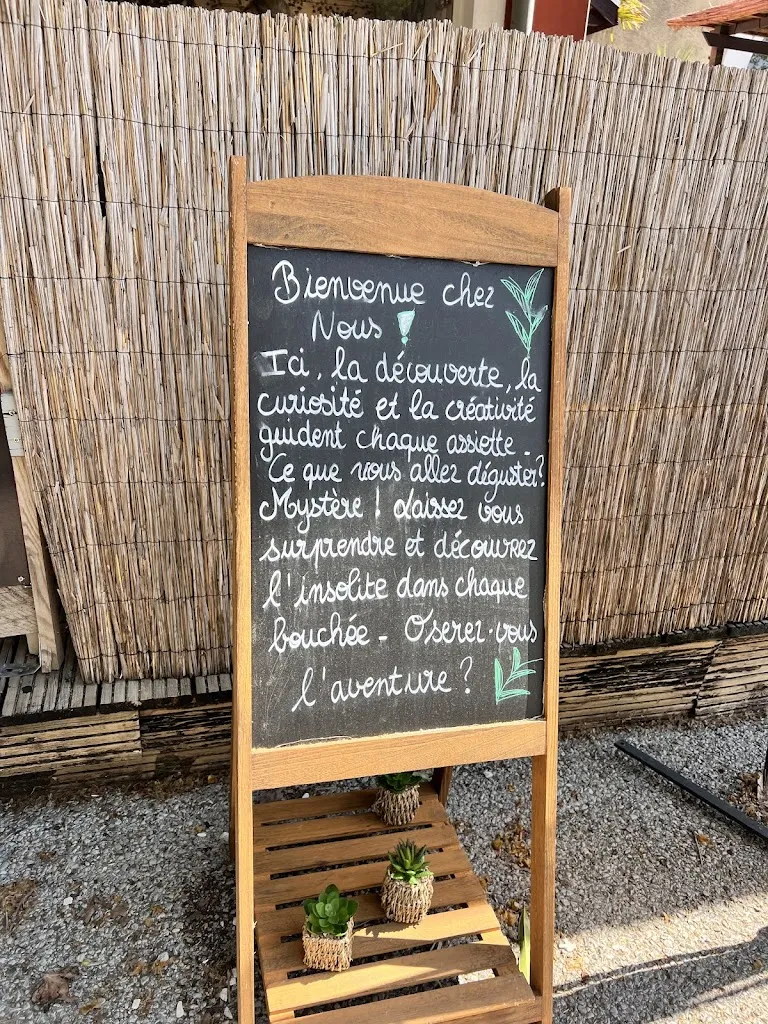 Bienvenue chez
Nous !
Ici, la découverte, la
curiosité et la créativité
guident chaque assiette -
Ce que vous allez déguster?
Mystère ! Laissez vous
surprendre et découvrez
l'insolite dans chaque
bouchée - Oserez-vous
l'aventure ?